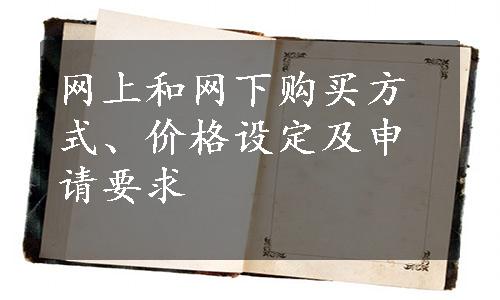 网上和网下购买方
式、价格设定及申
请要求